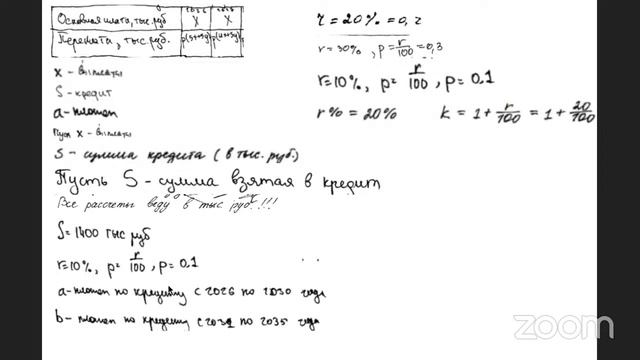 2036 2036
Основная плата, тыс. руб x x
Переплата, тыс. руб.
x - выплаты
S - кредит
a - платеж
Пусть x - выплаты
S - сумма кредита (в тыс. руб.)
Пусть S - сумма взятая в кредит
Все рассчеты веду в тыс руб.!!!
S = 1400 тыс руб
r=10%, p= r/100, p=0.1
a - платеж по кредиту с 2026 по 2030 года
b - платеж по кредиту с 2031 по 2035 года
r = 20% = 0,2
r = 30%, p = r/100 = 0,3
r=10%, p= r/100, p=0.1
r% = 20% k = 1 + r/100 = 1 + 20/100
zoom